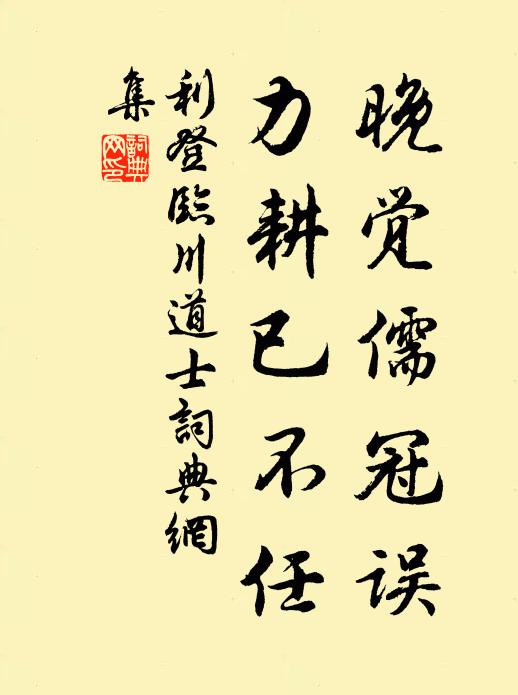 晚觉儒冠误
力耕已不任
利登臨川道士詞典網
集
詞典网印